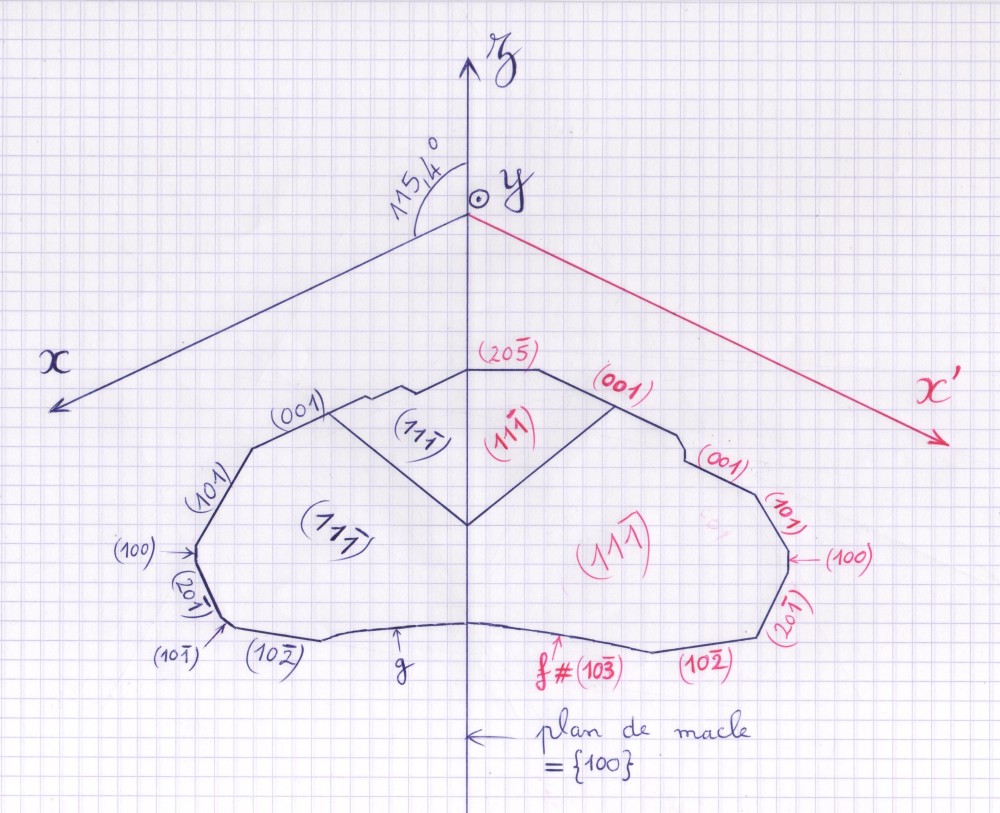 z
115,4°
y
x
x'
(205̅)
(001)
(001)
(111̅)
(111̅)
(001)
(101)
(101)
(111̅)
(111̅)
(100)
(100)
(201̅)
(201̅)
(101̅)
(102̅)
g
f # (103̅)
(102̅)
plan de macle
= {100}